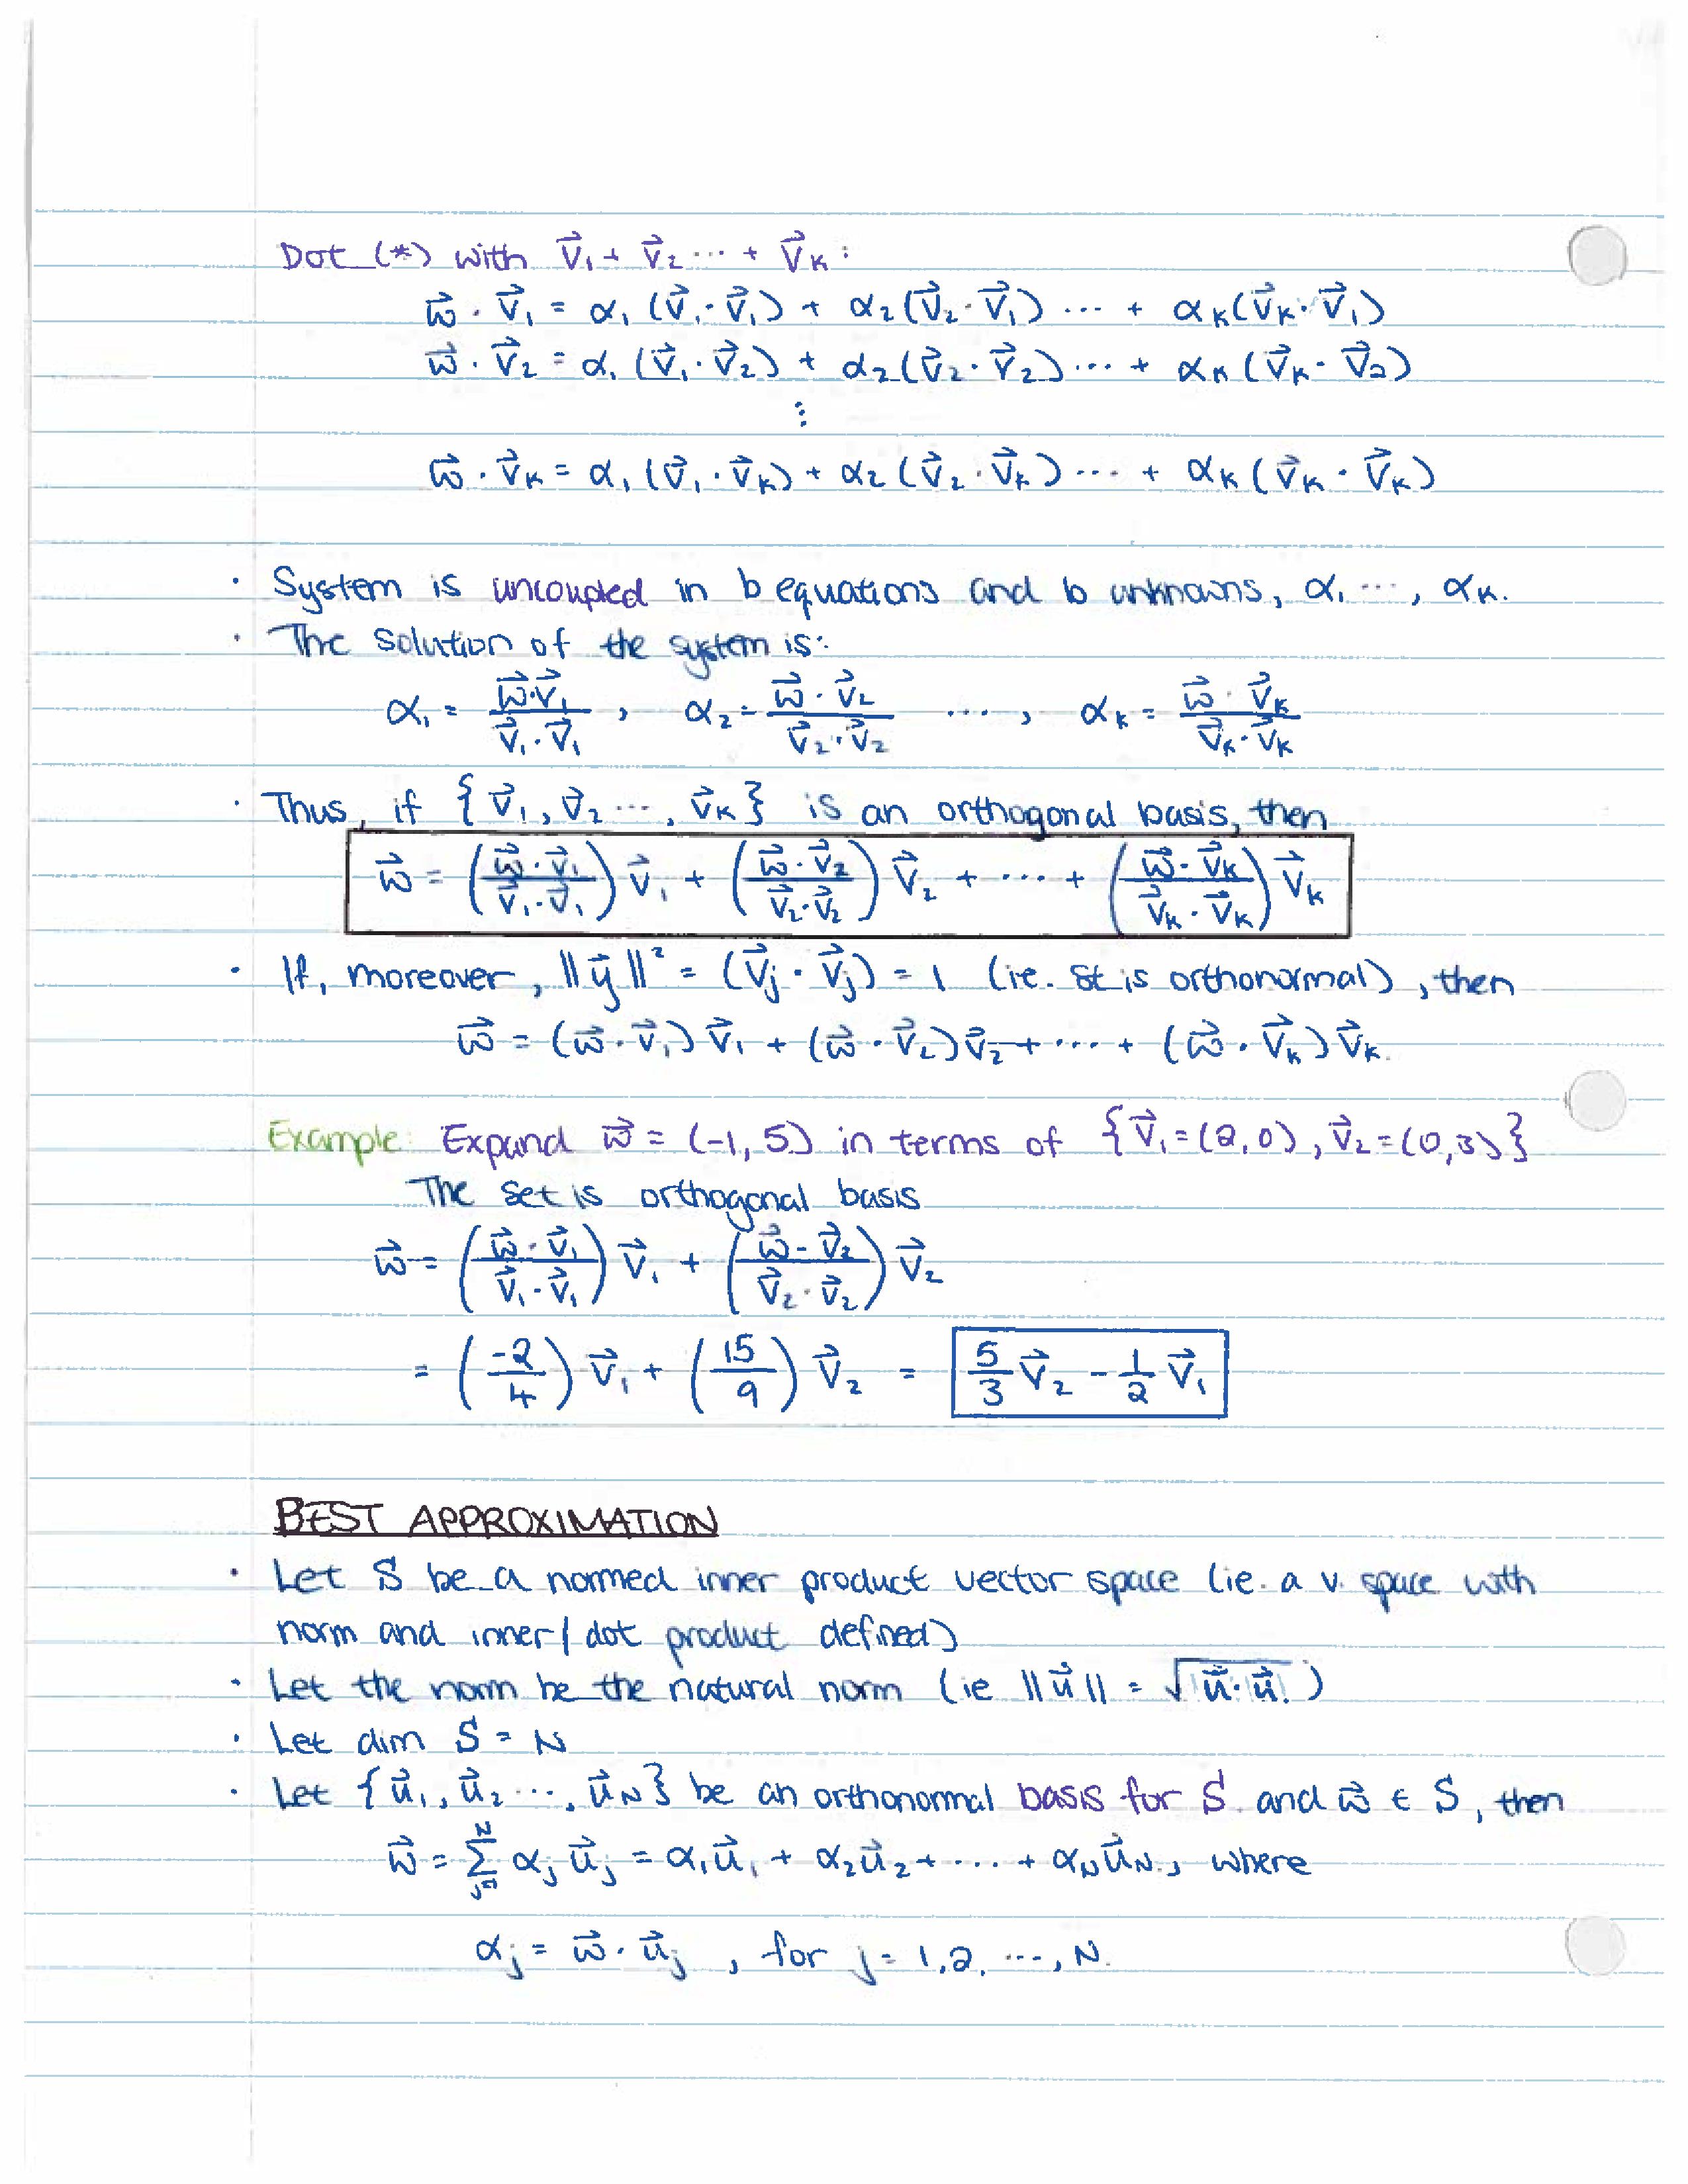 Dot (*) with v⃗₁ + v⃗₂ ... + v⃗ₖ :
w⃗ · v⃗₁ = α₁ (v⃗₁ · v⃗₁) + α₂ (v⃗₂ · v⃗₁) ... + αₖ (v⃗ₖ · v⃗₁)
w⃗ · v⃗₂ = α₁ (v⃗₁ · v⃗₂) + α₂ (v⃗₂ · v⃗₂) ... + αₖ (v⃗ₖ · v⃗₂)
⋮
w⃗ · v⃗ₖ = α₁ (v⃗₁ · v⃗ₖ) + α₂ (v⃗₂ · v⃗ₖ) ... + αₖ (v⃗ₖ · v⃗ₖ)
· System is uncoupled in b equations and b unknowns, α₁ ..., αₖ.
· The solution of the system is:
α₁ = (w⃗ · v⃗₁)/(v⃗₁ · v⃗₁) , α₂ = (w⃗ · v⃗₂)/(v⃗₂ · v⃗₂) ... , αₖ = (w⃗ · v⃗ₖ)/(v⃗ₖ · v⃗ₖ)
· Thus, if {v⃗₁, v⃗₂ ..., v⃗ₖ} is an orthogonal basis, then
w⃗ = ((w⃗ · v⃗₁)/(v⃗₁ · v⃗₁)) v⃗₁ + ((w⃗ · v⃗₂)/(v⃗₂ · v⃗₂)) v⃗₂ + ... + ((w⃗ · v⃗ₖ)/(v⃗ₖ · v⃗ₖ)) v⃗ₖ
· If, moreover, ||v⃗ⱼ||² = (v⃗ⱼ · v⃗ⱼ) = 1 (ie. set is orthonormal), then
w⃗ = (w⃗ · v⃗₁) v⃗₁ + (w⃗ · v⃗₂) v⃗₂ + ... + (w⃗ · v⃗ₖ) v⃗ₖ.
Example: Expand w⃗ = (-1, 5) in terms of {v⃗₁ = (2, 0), v⃗₂ = (0, 3)}
The set is orthogonal basis
w⃗ = ((w⃗ · v⃗₁)/(v⃗₁ · v⃗₁)) v⃗₁ + ((w⃗ · v⃗₂)/(v⃗₂ · v⃗₂)) v⃗₂
= (-2/4) v⃗₁ + (15/9) v⃗₂ = 5/3 v⃗₂ - 1/2 v⃗₁
BEST APPROXIMATION
· Let S be a normed inner product vector space (ie. a v. space with
norm and inner/dot product defined)
· Let the norm be the natural norm (ie ||u⃗|| = √(u⃗ · u⃗) )
· Let dim S = N
· Let {u⃗₁, u⃗₂ ..., u⃗N} be an orthonormal basis for S and w⃗ ∈ S, then
w⃗ = Σ_{j=1}^{N} αⱼ u⃗ⱼ = α₁u⃗₁ + α₂u⃗₂ + ... + αNu⃗N, where
αⱼ = w⃗ · u⃗ⱼ , for j = 1, 2, ..., N.